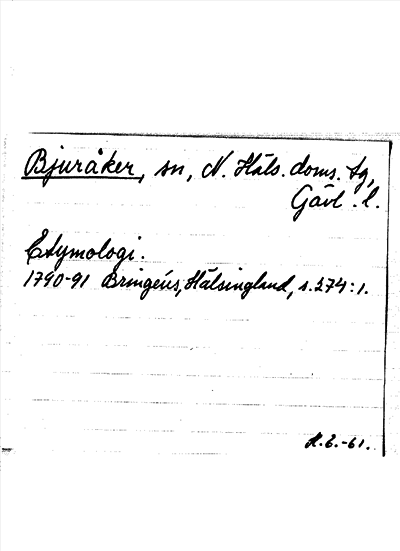 Bjuråker, sn, N. Häls. doms. tg,
Gävl. l.
Etymologi.
1790-91 Bringéus, Hälsingland, s. 274:1.
H.E.-61.